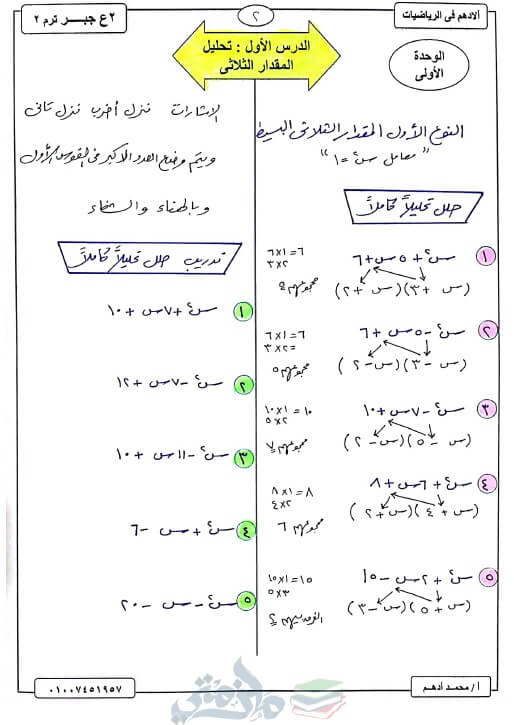 ألادهم فى الرياضيات
٢
٢ع جبـــر ترم ٢
الوحدة
الأولى
الدرس الأول : تحليل
المقدار الثلاثى
النوع الأول المقدار الثلاثى البسيط
" معامل س٢ = ١ "
حلل تحليلاً كاملاً
١ س٢ + ٥س + ٦
(س + ٣)(س + ٢)
٦ = ١×٦
٢×٣
مجموعهم
٢ س٢ - ٥س + ٦
(س - ٣)(س - ٢)
٦ = ١×٦
= ٢×٣
مجموعهم ٥
٣ س٢ - ٧س + ١٠
(س - ٥)(س - ٢)
١٠ = ١×١٠
٢×٥
مجموعهم ٧
٤ س٢ + ٦س + ٨
(س + ٤)(س + ٢)
٨ = ١×٨
٢×٤
مجموعهم ٦
٥ س٢ + ٢س - ١٥
(س + ٥)(س - ٣)
١٥ = ١×١٥
٣×٥
الفرق بينهم ٢
الإشارات تنزل أخرى تنزل تانى
ويتم وضع العدد الأكبر فى القوس الأول
وبالهناء والشفاء
تدريب حلل تحليلاً كاملاً
١ س٢ + ٧س + ١٠
٢ س٢ - ٧س + ١٢
٣ س٢ - ١١س + ١٠
٤ س٢ + س - ٦
٥ س٢ - س - ٢٠
أ / محمد أدهم
ملزمتي
٠١٠٠٧٤٥١٩٥٧